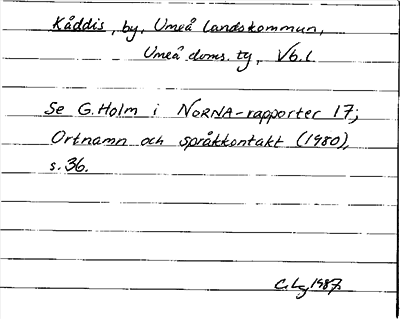 Kåddis, by, Umeå landskommun,
Umeå doms. tg, Vb. l.
Se G. Holm i NORNA-rapporter 17;
Ortnamn och språkkontakt (1980),
s. 36.
1987